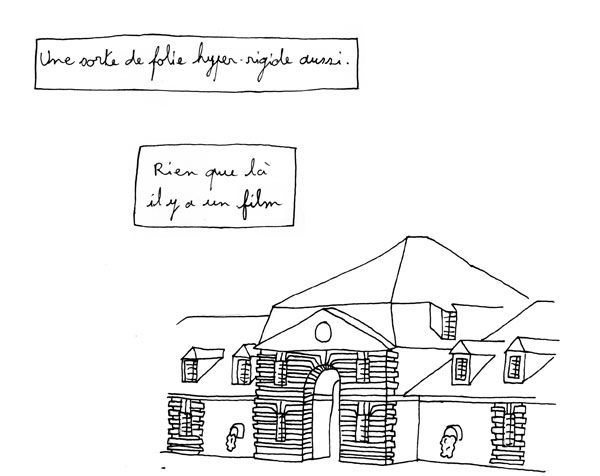 Une sorte de folie hyper-rigide aussi.
Rien que là
il y a un film